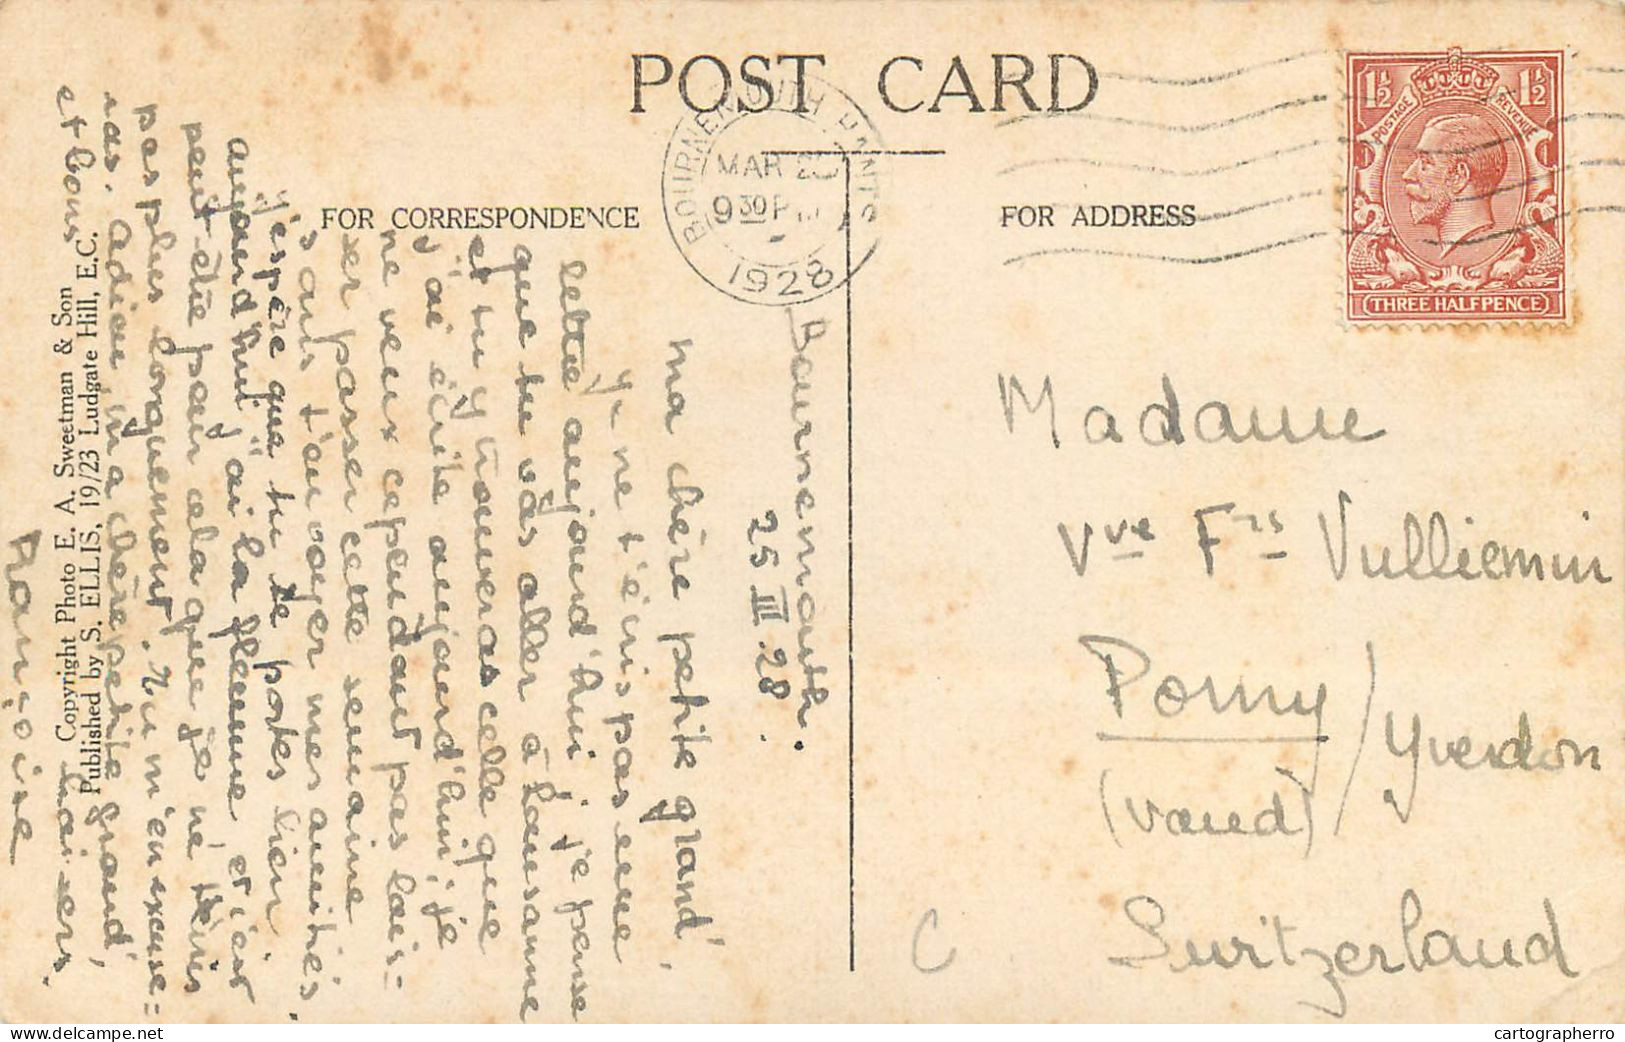 POST CARD
FOR CORRESPONDENCE
FOR ADDRESS
BOURNEMOUTH HANTS
MAR 2
9 30 P
1928
1½ 1½
POSTAGE REVENUE
THREE HALFPENCE
Copyright Photo E. A. Sweetman & Son
Published by S. ELLIS, 19/23 Ludgate Hill, E.C.
Bournemouth.
25 III 28.
Ma chère petite grand'
Je ne t'écris pas une
lettre aujourd'hui, je pense
que tu vas aller à Lausanne
et tu y trouveras celle que
j'ai écrite aujourd'hui; je
ne veux cependant pas lais-
ser passer cette semaine
sans t'envoyer mes amitiés.
J'espère que tu te portes bien.
aujourd'hui j'ai la flemme et c'est
peut-être pour cela que je ne t'écris
pas plus longuement. Tu m'excuse=
ras. Adieu ma chère petite grand',
et bons baisers.
Françoise
Madame
Vve Frs Vulliemin
Pomy / Yverdon
(Vaud)
Switzerland
C
delcampe.net
cartographerro